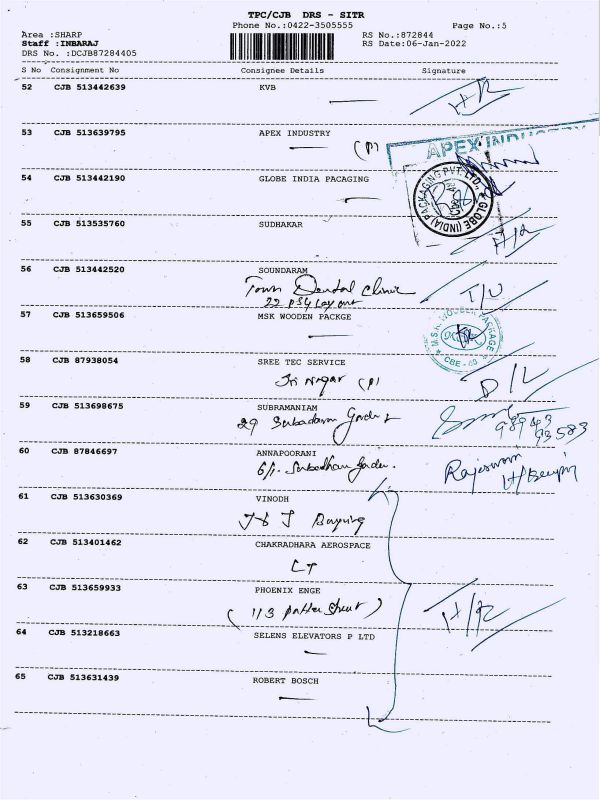 TPC/CJB DRS - SITR
Phone No.:0422-3505555 Page No.:5
Area :SHARP RS No.:872844
Staff :INBARAJ RS Date:06-Jan-2022
DRS No. :DCJB87284405
S No Consignment No Consignee Details Signature
52 CJB 513442639 KVB
H/R
53 CJB 513639795 APEX INDUSTRY
(P) APEX INDUSTRY
54 CJB 513442190 GLOBE INDIA PACAGING
GLOBE (INDIA) PACKAGING PVT. LTD.
55 CJB 513535760 SUDHAKAR
H/R
56 CJB 513442520 SOUNDARAM
Town Dental Clinic T/U
57 CJB 513659506 MSK WOODEN PACKGE
M.S.K. WOODEN PACKAGE
CBE
58 CJB 87938054 SREE TEC SERVICE
Sri Nagar (P) D/L
59 CJB 513698675 SUBRAMANIAM
29 98943
93583
60 CJB 87846697 ANNAPOORANI
6/1 Rajeswari
61 CJB 513630369 VINODH
62 CJB 513401462 CHAKRADHARA AEROSPACE
63 CJB 513659933 PHOENIX ENGE
(113 Street) H/R
64 CJB 513218663 SELENS ELEVATORS P LTD
65 CJB 513631439 ROBERT BOSCH